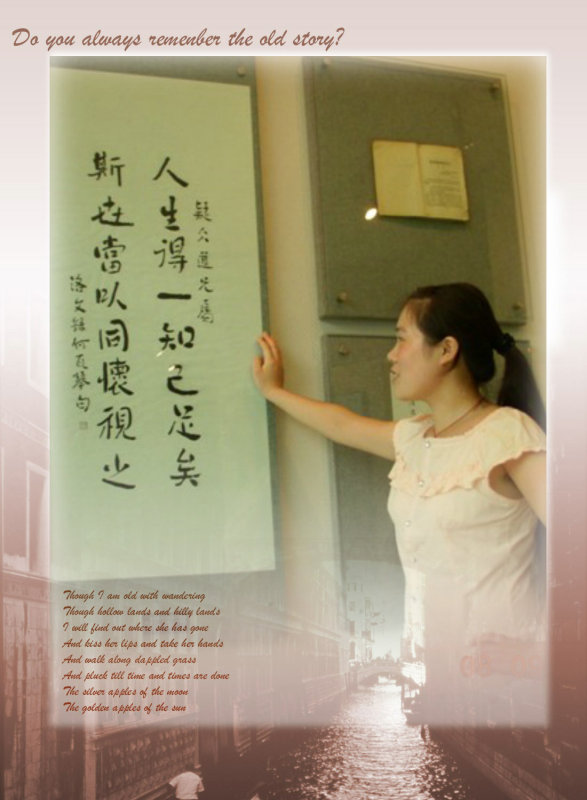 Do you always remenber the old story?
人生得一知己足矣
疑仌道兄屬
斯世當以同懷視之
洛文錄何瓦琴句
Though I am old with wandering
Though hollow lands and hilly lands
I will find out where she has gone
And kiss her lips and take her hands
And walk along dappled grass
And pluck till time and times are done
The silver apples of the moon
The golden apples of the sun